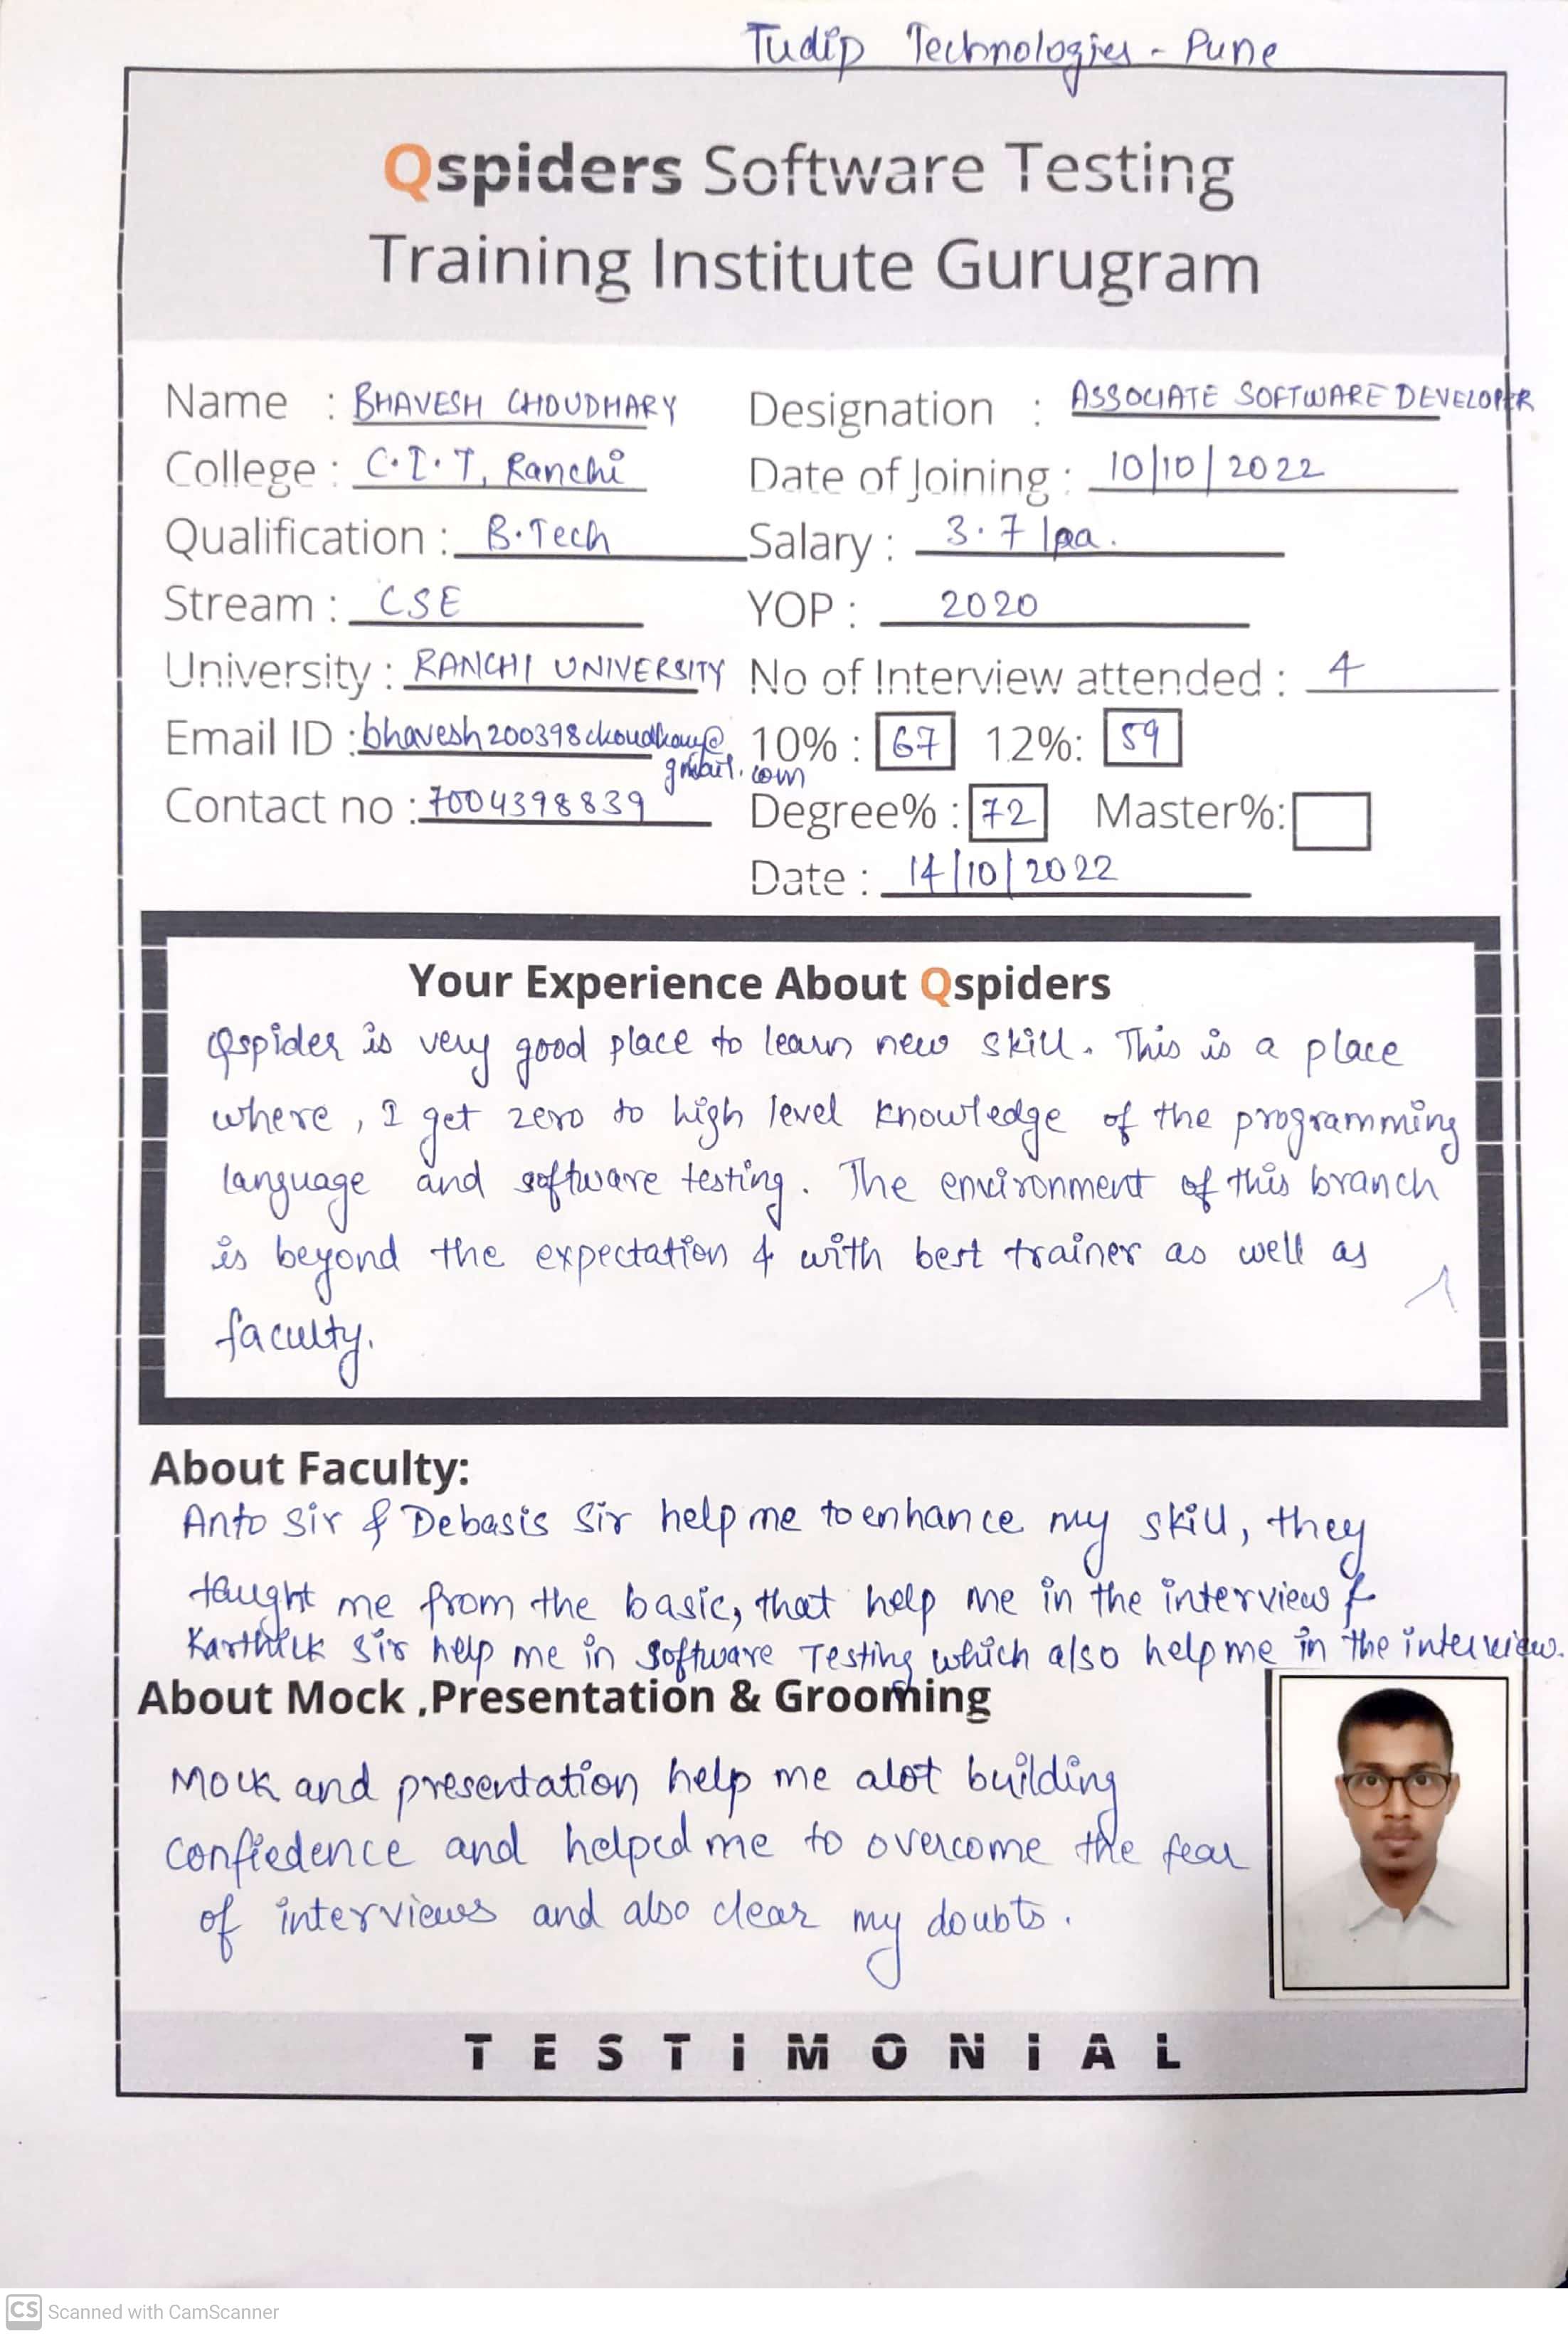 Tudip Technologies - Pune
Qspiders Software Testing
Training Institute Gurugram
Name : BHAVESH CHOUDHARY Designation : ASSOCIATE SOFTWARE DEVELOPER
College : C.I.T, Ranchi Date of Joining : 10/10/2022
Qualification : B.Tech Salary : 3.7 lpa.
Stream : CSE YOP : 2020
University : RANCHI UNIVERSITY No of Interview attended : 4
Email ID : bhavesh200398choudhary@ 10% : 67 12%: 59
gmail.com
Contact no : 7004398839 Degree% : 72 Master%:
Date : 14/10/2022
Your Experience About Qspiders
Qspider is very good place to learn new skill. This is a place
where, I get zero to high level knowledge of the programming
language and software testing. The environment of this branch
is beyond the expectation & with best trainer as well as
faculty.
About Faculty:
Anto Sir & Debasis Sir help me to enhance my skill, they
taught me from the basic, that help me in the interview &
Karthick Sir help me in Software Testing which also help me in the interview.
About Mock ,Presentation & Grooming
Mock and presentation help me alot building
confiedence and helped me to overcome the fear
of interviews and also clear my doubts.
TESTiMONiAL
CS Scanned with CamScanner